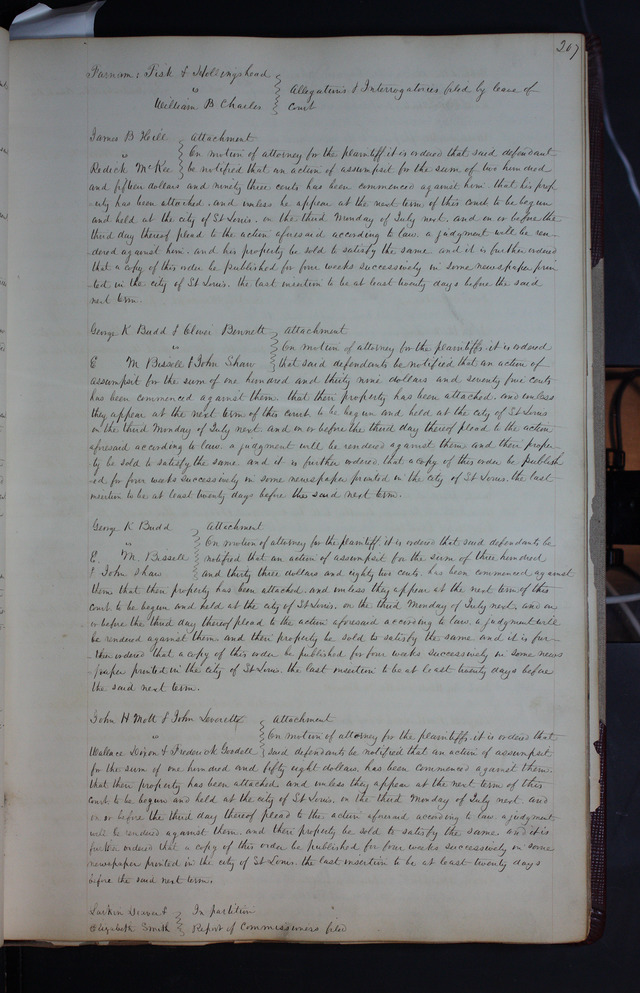 267
Farnam, Fisk & Hollingshead
vs
Allegations & Interrogatories filed by leave of
William B Charles
Court
James B Hill
Attachment
vs
On motion of attorney for the plaintiff it is ordered that said defendant
Redick McKee
be notified that an action of assumpsit for the sum of two hundred
and fifteen dollars and ninety three cents has been commenced against him. that his prop
erty has been attached. and unless he appear at the next term of this court to be begun
and held at the city of St Louis. on the third Monday of July next. and on or before the
third day thereof plead to the action aforesaid according to law. a judgment will be ren-
dered against him. and his property be sold to satisfy the same. and it is further ordered
that a copy of this order be published for four weeks successively in some newspaper prin
ted in the city of St Louis. the last insertion to be at least twenty days before the said
next term.
George K Budd & Oliver Bennett
Attachment
vs
On motion of attorney for the plaintiffs it is ordered
E M Bissell & John Shaw
that said defendants be notified that an action of
assumpsit for the sum of one hundred and thirty nine dollars and seventy five cents
has been commenced against them. that their property has been attached. and unless
they appear at the next term of this court to be begun and held at the city of St Louis
on the third Monday of July next. and on or before the third day thereof plead to the action
aforesaid according to law. a judgment will be rendered against them and their proper
ty be sold to satisfy the same. and it is further ordered that a copy of this order be publish
ed for four weeks successively in some newspaper printed in the city of St Louis. the last
insertion to be at least twenty days before the said next term.
George K Budd
Attachment
vs
On motion of attorney for the plaintiff it is ordered that said defendants be
E. M. Bissell
notified that an action of assumpsit for the sum of three hundred
& John Shaw
and thirty three dollars and eighty two cents. has been commenced against
them that their property has been attached. and unless they appear at the next term of this
court to be begun and held at the city of St Louis. on the third Monday of July next. and on
or before the third day thereof plead to the action aforesaid according to law a judgment will
be rendered against them and their property be sold to satisfy the same and it is fur-
ther ordered that a copy of this order be published for four weeks successively in some news
paper printed in the city of St Louis. the last insertion to be at least twenty days before
the said next term.
John H Mott & John Leverett
Attachment
vs
On motion of attorney for the plaintiffs. it is ordered that
Wallace Dixon & Frederick Goodell
said defendants be notified that an action of assumpsit
for the sum of one hundred and fifty eight dollars. has been commenced against them.
that their property has been attached and unless they appear at the next term of this
court to be begun and held at the city of St Louis. on the third Monday of July next. and
on or before the third day thereof plead to the action aforesaid according to law a judgment
will be rendered against them. and their property be sold to satisfy the same. and it is
further ordered that a copy of this order be published for four weeks successively in some
newspaper printed in the city of St Louis. the last insertion to be at least twenty days
before the said next term.
Larkin Deaver &
In partition
Elizabeth Smith
Report of Commissioners filed